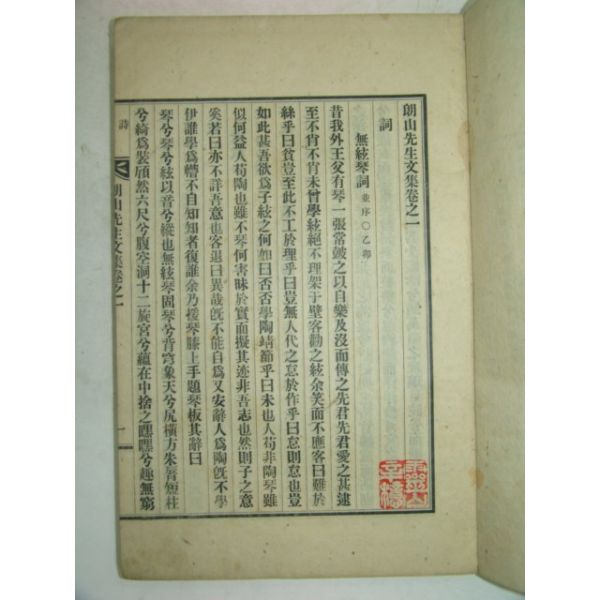 朗山先生文集卷之一
詞
無絃琴詞 並序○乙卯
昔我外王父有琴一張常皷之以自樂及沒而傳之先君先君愛之甚逮
至不肖不肖未曾學絃絕不理架于壁客勸之絃余笑而不應客曰難於
絲乎曰貧豈至此不工於理乎曰豈無人代之怠於作乎曰怠則怠也豈
如此甚吾欲爲子絃之何如曰否否學陶靖節乎曰未也人苟非陶琴雖
似何益人苟陶也雖不琴何害昧於實而擬其迹非吾志也然則子之意
奚若曰亦不詳吾意也客退曰異哉旣不能自爲又安辭人爲陶旣不學
伊誰學爲懵不自知知者復誰余乃援琴膝上手題琴板其辭曰
琴兮琴兮絃以音兮縱也無絃琴固琴兮背穹象天兮尻橫方朱簹短柱
兮綺爲裝頎然六尺兮腹空洞十二旋宮兮蘊在中捨之嘿嘿兮趣無窮
詩
朗山先生文集卷之一
一